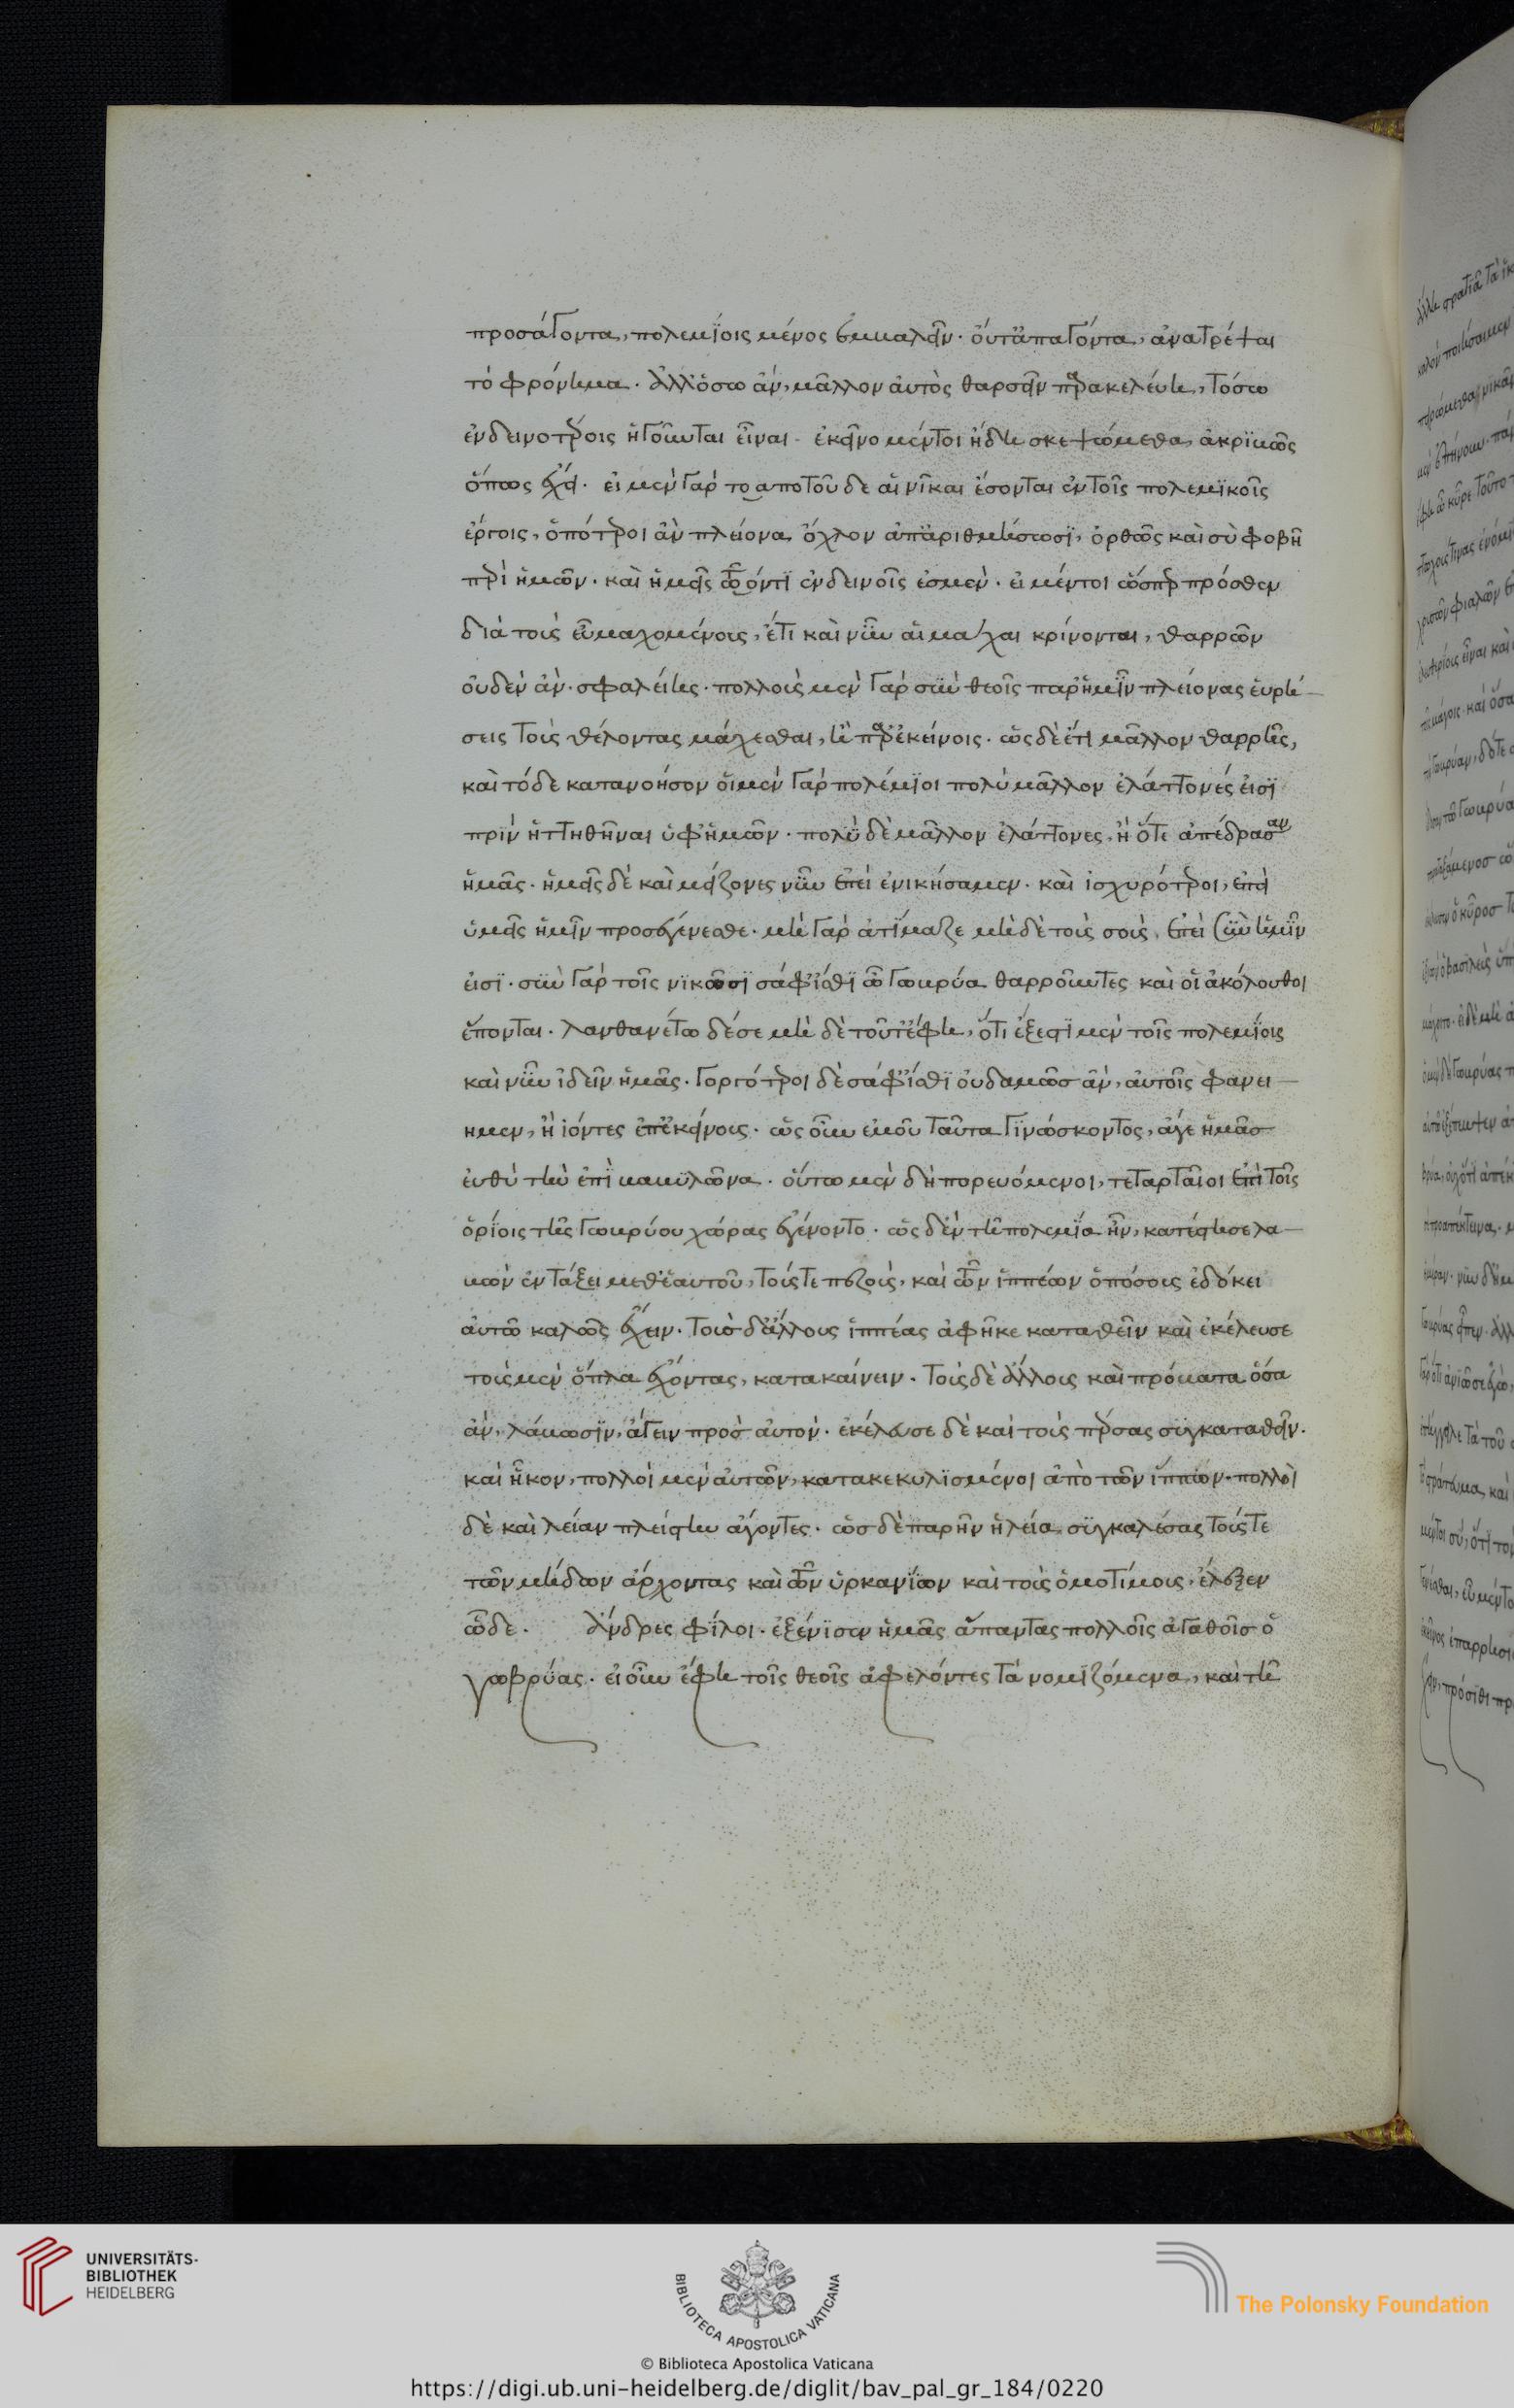 προσάγοντα, πολεμίοις μένος ἐμβαλεῖν. οὔτ' ἀπαγόντα, ἀνατρέψαι
τὸ φρόνημα. ἀλλ' ὅσω ἂν, μᾶλλον αὐτὸς θαρσεῖν παρακελεύη, τόσω
ἐν δεινοτέροις ἡγοῦνται εἶναι. ἐκεῖνο μέντοι ἤδη σκεψώμεθα, ἀκριβῶς
ὅπως ἔχει. εἰ μὲν γὰρ το αποτοῦδε αἱ νῖκαι ἔσονται ἐν τοῖς πολεμικοῖς
ἔργοις, ὁπότεροι ἂν πλείονα ὄχλον ἀπαριθμήσωσϊ, ὀρθῶς καὶ σὺ φοβῆ
περὶ ἡμῶν. καὶ ἡμεῖς τῶ ὄντϊ ἐν δεινοῖς ἐσμεν. εἰ μέντοι ὥσπερ πρόσθεν
διὰ τοὺς εὖ μαχομένους, ἔτι καὶ νῦν αἱ μάχαι κρίνονται, θαρρῶν
οὐδὲν ἂν. σφαλείης. πολλοὺς μὲν γὰρ σὺν θεοῖς παρ' ἡμῖν πλείονας εὑρή-
σεις τοὺς θέλοντας μάχεσθαι, ἢ παρ' ἐκείνοις. ὡς δὲ ἔτι μᾶλλον θαρρῆς,
καὶ τόδε κατανοήσον οἱ μὲν γὰρ πολέμϊοι πολὺ μᾶλλον ἐλάττονές εἰσϊ
πρὶν ἡττηθῆναι ὑφ' ἡμῶν. πολὺ δὲ μᾶλλον ἐλάττονες, ἢ ὅτε ἀπέδρασαν
ἡμᾶς. ἡμεῖς δὲ καὶ μείζονες νῦν ἐπεὶ ἐνικήσαμεν. καὶ ἰσχυρότεροι, ἐπεὶ
ὑμεῖς ἡμῖν προσγένεσθε. μὴ γὰρ ἀτίμαζε μὴ δὲ τοὺς σοὺς, ἐπεὶ σὺν ἡμῖν
εἰσϊ. σὺν γὰρ τοῖς νϊκῶσϊ σάφ' ἴσθϊ ὦ Γωβρύα θαρροῦντες καὶ οἱ ἀκόλουθοι
ἕπονται. λανθανέτω δέ σε μὴ δὲ τοῦτ' ἔφη, ὅτι ἔξεστϊ μὲν τοῖς πολεμίοις
καὶ νῦν ἰδεῖν ἡμᾶς. γοργότεροι δὲ σάφ' ἴσθϊ οὐδαμῶς ἂν, αὐτοῖς φανεί-
ημεν, ἢ ἰόντες ἐπ' ἐκείνους. ὡς οὖν ἐμοῦ ταῦτα γϊνώσκοντος, ἄγε ἡμᾶς
εὐθὺ τὴν ἐπὶ βαβυλῶνα. οὕτω μὲν δὴ πορευόμενοι, τεταρταῖοι ἐπὶ τοῖς
ὁρίοις τῆς Γωβρύου χώρας ἐγένοντο. ὡς δ' ἐν τῆ πολεμία ἦν, κατέστησε λα-
βὼν ἐν τάξει μεθ' ἑαυτοῦ, τούς τε πεζοὺς, καὶ τῶν ἱππέων ὁπόσους ἐδόκει
αὐτῶ καλῶς ἔχειν. τοὺς δ' ἄλλους ἱππέας ἀφῆκε καταθεῖν καὶ ἐκέλευσε
τοὺς μὲν ὅπλα ἔχοντας, κατακαίνειν. τοὺς δὲ ἄλλους καὶ πρόβατα ὅσα
ἂν, λάβωσϊν, ἄγειν πρὸς αὐτὸν. ἐκέλευσε δὲ καὶ τοὺς πέρσας συγκαταθεῖν.
καὶ ἧκον, πολλοὶ μὲν αὐτῶν, κατακεκυλϊσμένοι ἀπὸ τῶν ἵππων. πολλοὶ
δὲ καὶ λείαν πλείστην ἄγοντες. ὡς δὲ παρῆν ἡ λεία, συγκαλέσας τούς τε
τῶν μήδων ἄρχοντας καὶ τῶν ὑρκανΐων καὶ τοὺς ὁμοτίμους, ἔλεξεν
ὧδε. Ἄνδρες φίλοι. ἐξένϊσεν ἡμᾶς ἅπαντας πολλοῖς ἀγαθοῖς ὁ
γωβρύας. εἰ οὖν ἔφη τοῖς θεοῖς ἀφελόντες τὰ νομϊζόμενα, καὶ τῆ
UNIVERSITÄTS-
BIBLIOTHEK
HEIDELBERG
BIBLIOTECA APOSTOLICA VATICANA
The Polonsky Foundation
© Biblioteca Apostolica Vaticana
https://digi.ub.uni-heidelberg.de/diglit/bav_pal_gr_184/0220